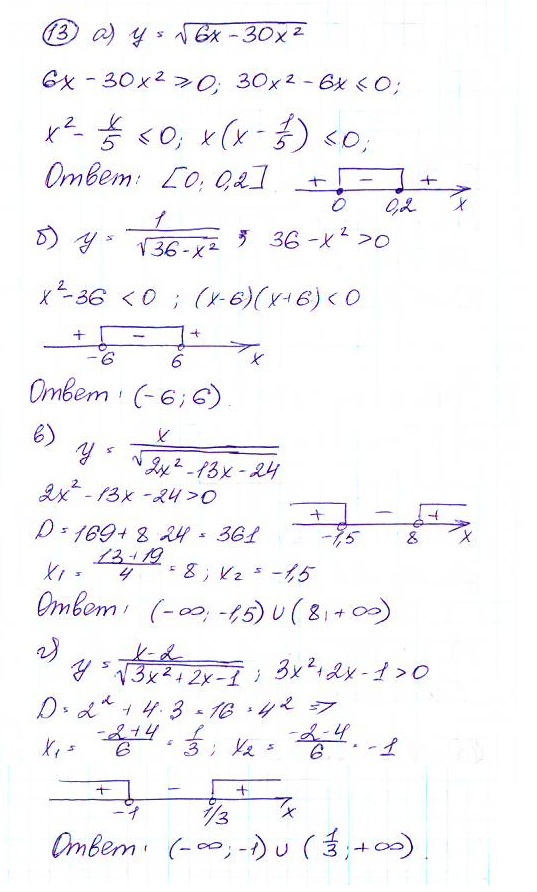 13 а) y = √(6x - 30x²)
6x - 30x² ≥ 0; 30x² - 6x ≤ 0;
x² - x/5 ≤ 0; x(x - 1/5) ≤ 0;
Ответ: [0; 0,2]
+ - +
0 0,2 x
б) y = 1/√(36-x²) ; 36 - x² > 0
x² - 36 < 0 ; (x-6)(x+6) < 0
+ - +
-6 6 x
Ответ: (-6; 6).
в) y = x/√(2x² - 13x - 24)
2x² - 13x - 24 > 0
D = 169 + 8 24 = 361
x₁ = (13+19)/4 = 8; x₂ = -1,5
+ - +
-1,5 8 x
Ответ: (-∞; -1,5) ∪ (8; +∞)
г) y = (x-2)/√(3x²+2x-1) ; 3x²+2x-1 > 0
D = 2² + 4·3 = 16 = 4² ⇒
x₁ = (-2+4)/6 = 1/3; x₂ = (-2-4)/6 = -1
+ - +
-1 1/3 x
Ответ: (-∞; -1) ∪ (1/3; +∞).